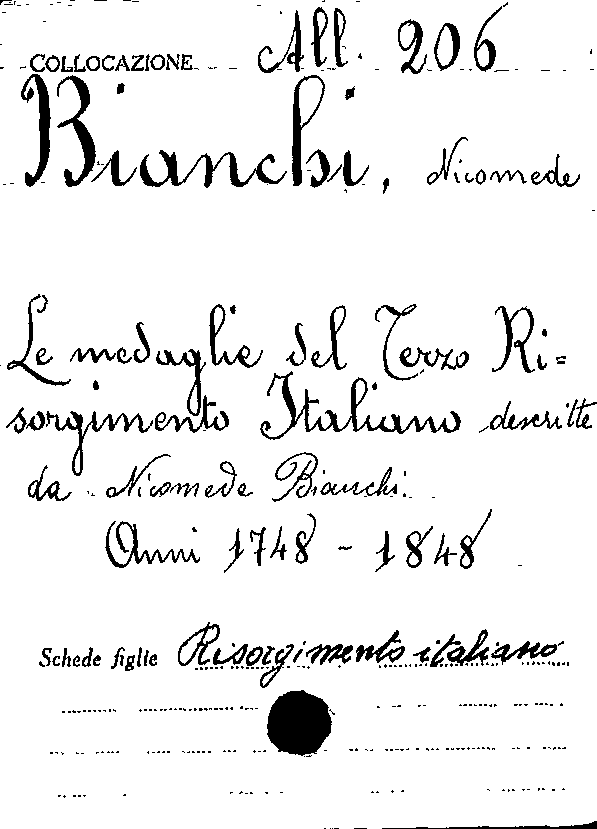 COLLOCAZIONE All. 206
Bianchi, Nicomede
Le medaglie del Terzo Ri=
sorgimento Italiano descritte
da Nicomede Bianchi.
Anni 1748 - 1848
Schede figlie Risorgimento italiano